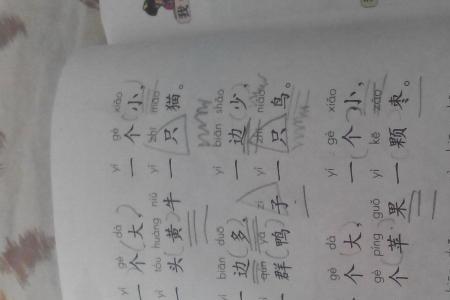 我
yí gè dà yí gè xiǎo
一个(大)，一个(小)，
yì tóu huáng niú yì zhī māo
一头黄牛一只猫。
yì biān duō yì biān shǎo
一边(多)，一边(少)，
qún yā zi yì zhī niǎo
一群(鸭)子一只鸟。
gè dà yí gè xiǎo
一个(大)，一(个)小，
gè píng guǒ yì kē zǎo
个(苹)果一(颗)枣。